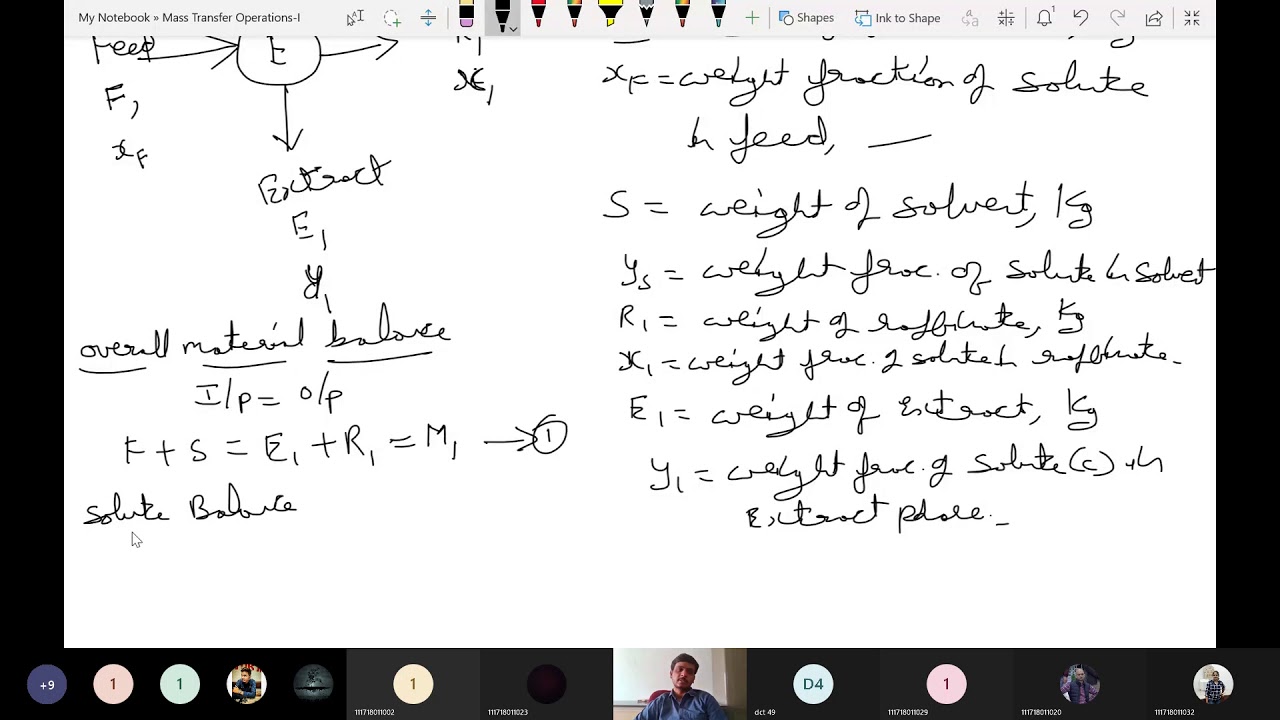 My Notebook » Mass Transfer Operations-I
Shapes
Ink to Shape
Feed
E
R1
F,
x1
xF
Extract
E1
y1
overall material balance
I/p = O/p
F + S = E1 + R1 = M1 → 1
Solute Balance
xF = weight fraction of solute
in feed, —
S = weight of solvent, Kg
ys = weight frac. of solute in solvet
R1 = weight of raffinate, Kg
x1 = weight frac. of solute in raffinate.
E1 = weight of Extract, Kg
y1 = weight frac. of solute (c) in
Extract phase.
+9
1
1
1
D4
1
111718011002
111718011023
dct 49
111718011029
111718011020
111718011032